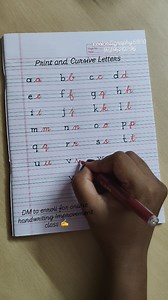 Print and Cursive Letters
a a b b c c d d
e e f f g g h h
i i j j k k l l
m m n n o o p p
q q r r s s t t
u u v
DM to enroll for online
handwriting improvement
class ✍️